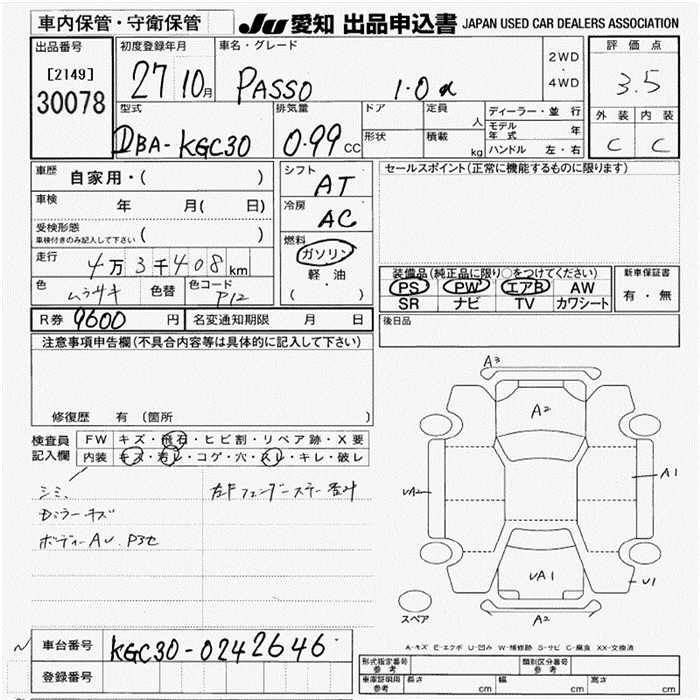 車内保管・守衛保管
JU 愛知 出品申込書 JAPAN USED CAR DEALERS ASSOCIATION
出品番号
[2149]
30078
初度登録年月
27 10月
車名・グレード
PASSO 1.0
2WD
・
4WD
評価点
3.5
外装 内装
C C
型式
DBA-KGC30
排気量
0.99 CC
ドア
定員
人
形状
積載
kg
ディーラー・並行
モデル年式 年
ハンドル 左・右
車歴
自家用・( )
車検
年 月( 日)
受検形態
車検付きのみ記入して下さい ( )
走行
4万3千408km
色
ムラサキ
色替
色コード
P12
シフト
AT
冷房
AC
燃料
ガソリン
軽・油
( )
セールスポイント(正常に機能するものに限ります)
装備品(純正品に限り○をつけてください)
PS PW エアB AW
SR ナビ TV カワシート
新車保証書
有・無
R券 9600 円 名変通知期限 月 日
後日品
注意事項申告欄(不具合内容等は具体的に記入して下さい)
修復歴 有 (箇所
検査員
記入欄
FW キズ・飛石・ヒビ割・リペア跡・X要
内装 キズ・汚レ・コゲ・穴・スレ・キレ・破レ
シミ、
Dミラーキズ
ボディーAU.P3セ
左Fフェンダーステー
A3
A2
A1
UA2
UA1
U1
A2
スペア
A-キズ E-エクボ U-凹み W-補修跡 S-サビ C-腐食 XX-交換済
車台番号
KGC30-0242646
登録番号
形式指定番号
参考
類別区分番号
参考
車庫証明用
参考
長さ cm 幅 cm 高さ cm